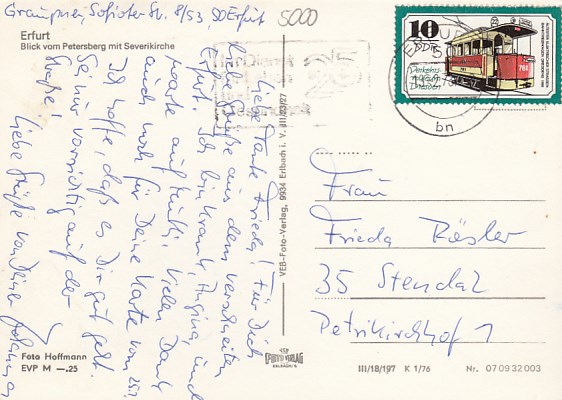 Graupner, Sofioter Str. 8/53, 50 Erfurt
5000
Erfurt
Blick vom Petersberg mit Severikirche
Liebe Tante Frieda! Für Dich
liebe Grüße aus dem verschneiten
Erfurt. Ich bin krank, Angina, und
warte auf Kutti. Vielen Dank
auch noch für Deine Karte vom
Ich hoffe, daß es Dir gut geht.
Sei nur vorsichtig auf der
Straße!
Liebe Grüße von Deiner Johanna
Foto Hoffmann
EVP M —.25
VEB-Foto-Verlag, 9934 Erlbach i. V. III/23/27
FOTO VERLAG
ERLBACH
10
DDR
Verkehrs-
museum
Dresden
761
bn
Frau
Frieda Rösler
35 Stendal
Petrikirchhof 1
III/18/197 K 1/76 Nr. 07 09 32 003